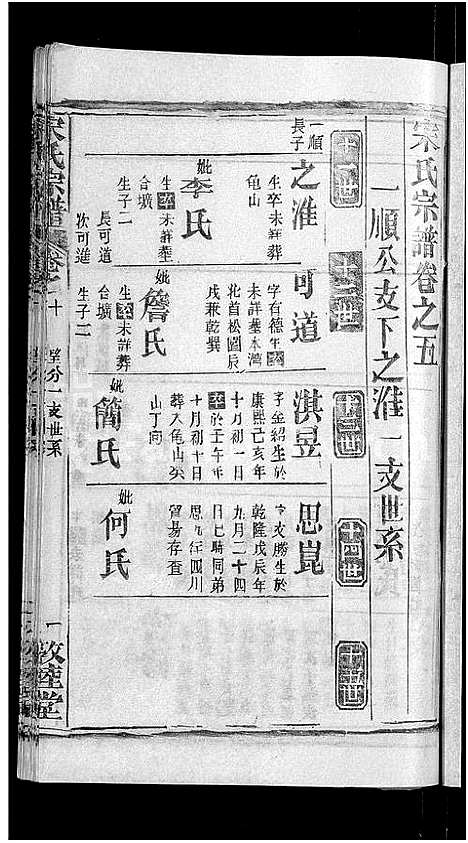 宋氏宗譜卷之五
一順公支下之淮一支世系
十一世
十二世
十三世
十四世
十五世
一順長子
之淮
生卒未詳葬
龜山
妣李氏
生卒未詳葬
合壙
生子二
長可道
次可進
可道
字有德生卒
未詳葬本灣
北首松園辰
戌兼乾巽
妣詹氏
生卒未詳葬
合壙
生子二
淇昱
字金紹生於
康熙己亥年
十月初一日
卒於壬午年
十月初十日
葬入龜山癸
山丁向
妣簡氏
思崑
字文勝生於
乾隆戊辰年
九月二十四
日巳時同弟
思 往四川
貿易存查
妣何氏
宋氏宗譜
卷之十
望分一支世系
一
敦睦堂